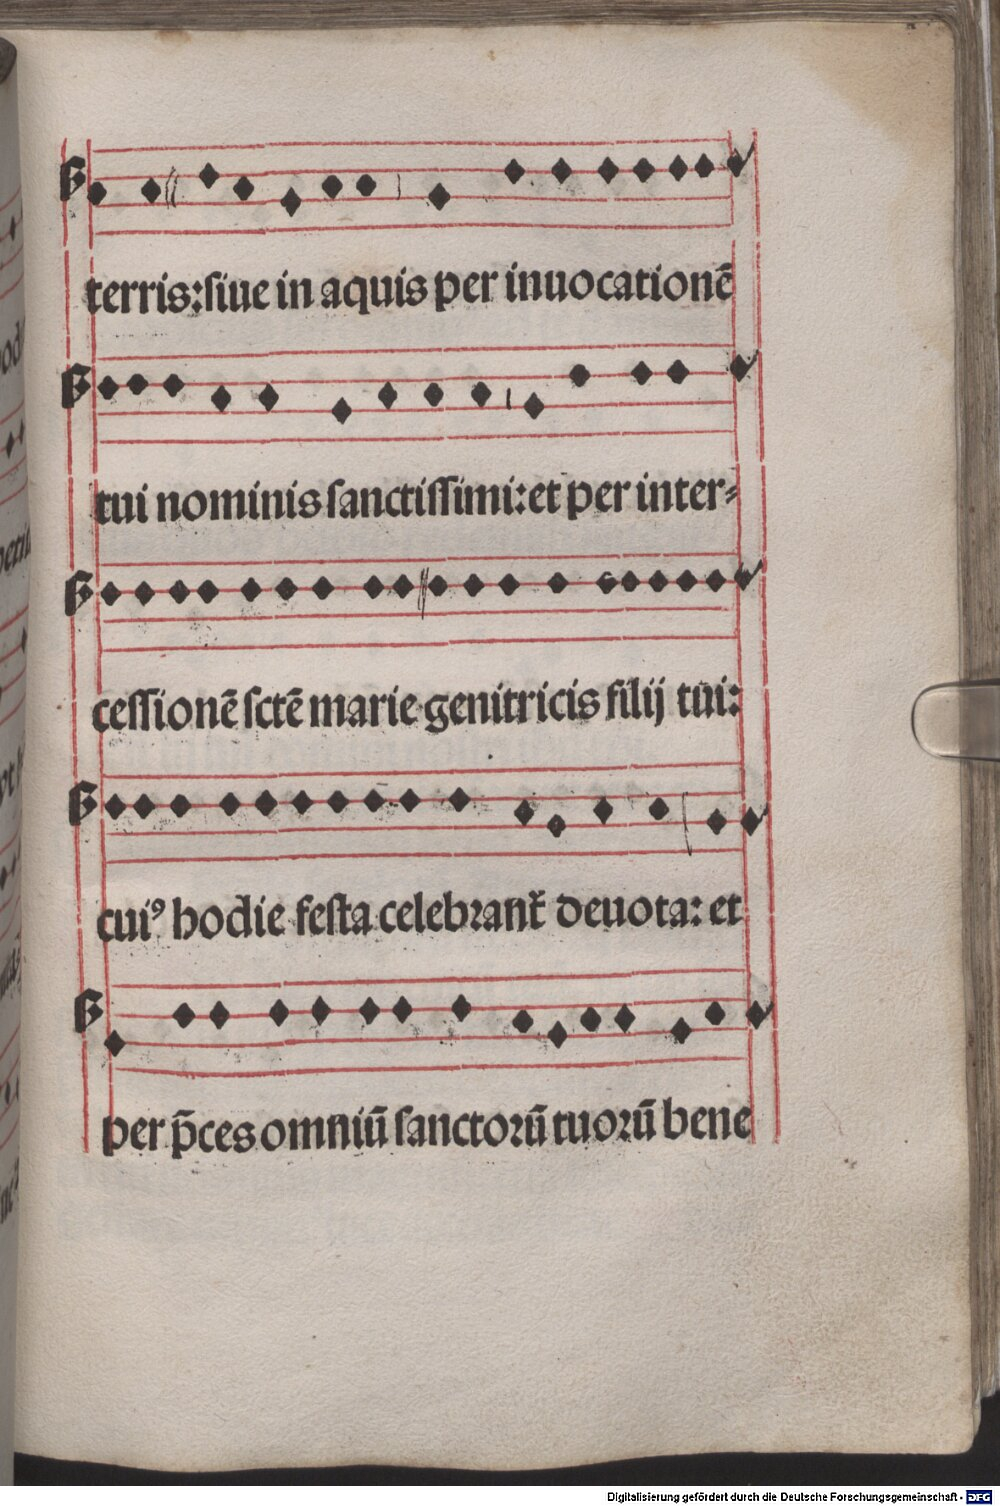 terris:ſiue in aquis per inuocationē
tui nominis ſanctiſſimi:et per inter⸗
ceſſionē ſctē marie genitricis filij tui:
cuiꝰ hodie feſta celebꝛant᷑ deuota: et
per p̄ces omniū ſanctoꝛū tuoꝛū bene
Digitalisierung gefördert durch die Deutsche Forschungsgemeinschaft - DFG